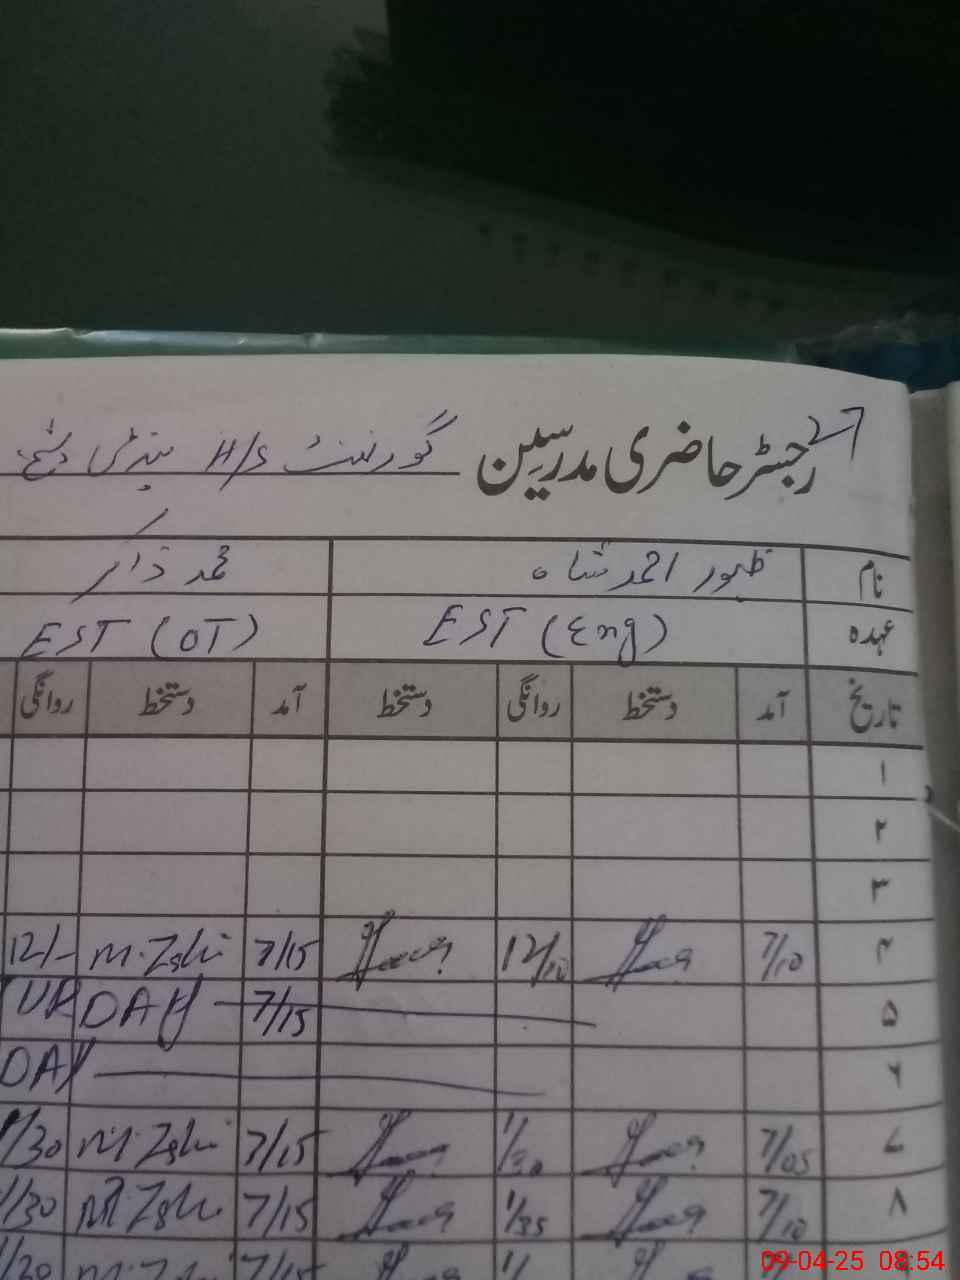 رجسٹر حاضری مدرسین گورنمنٹ H/S
نام ظہور احمد شاہ محمد ذاکر
عہدہ EST (Eng) EST (OT)
تاریخ آمد دستخط روانگی دستخط آمد دستخط روانگی
۱
۲
۳
۴ 7/10 12/10 7/15 M. Zaki 12/-
۵ 7/15 URDAY
۶ DAY
۷ 7/05 1/30 7/15 M. Zaki 1/30
۸ 7/10 1/35 7/15 M. Zaki 1/30
7/15 M. Zaki 1/30
09-04-25 08:54